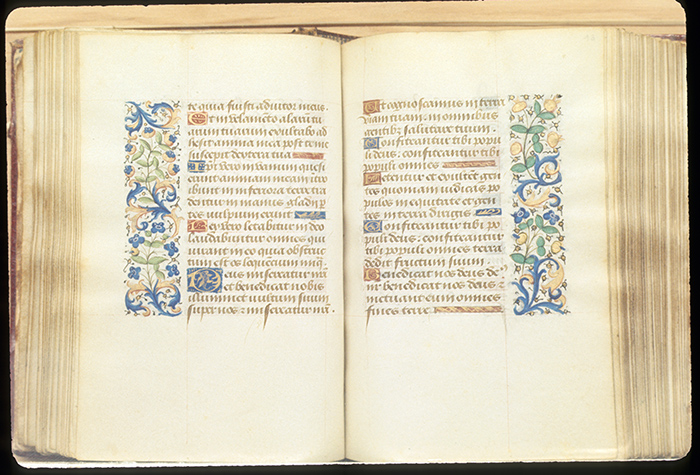 te quia fuisti adiutor meus.
Et in velamento alarum tu
arum tuarum exultabo ad
hesit anima mea post te me
suscepit dextera tua
Ipsi vero in vanum quesi
erunt animam meam intro
ibunt in inferiora terre tra
dentur in manus gladii par
tes vulpium erunt
Rex vero letabitur in deo
laudabuntur omnes qui
iurant in eo quia obstruc
tum est os loquentium iniq
Deus misereatur nri
et benedicat nobis
illuminet vultum suum
super nos et misereatur nri.
Ut cognoscamus in terra
viam tuam: in omnibus
gentib salutare tuum.
Confiteantur tibi popu
li deus: confiteantur tibi
populi omnes
Letentur et exultent gen
tes quoniam iudicas po
pulos in equitate et gen
tes in terra dirigis
Confiteantur tibi po
puli deus: confiteantur
tibi populi omnes terra
dedit fructum suum.
Benedicat nos deus de
nr benedicat nos deus et
metuant eum omnes
fines terre